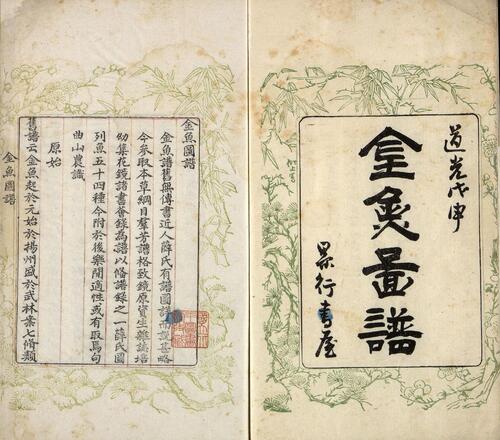 道光戊申
金魚圖譜
景行書屋
金魚圖譜
金魚譜舊無傳書近人薛氏有譜圖詳而說甚略
今參取本草綱目羣芳譜格致鏡原資生雜誌培
幼集花鏡諸書薈錄為譜以備譜錄之一薛氏圖
列魚五十四種今附於後樂閒適性或有取焉句
曲山農識
原始
舊譜云金魚起於元始於揚州盛於武林案七脩類
金魚圖譜